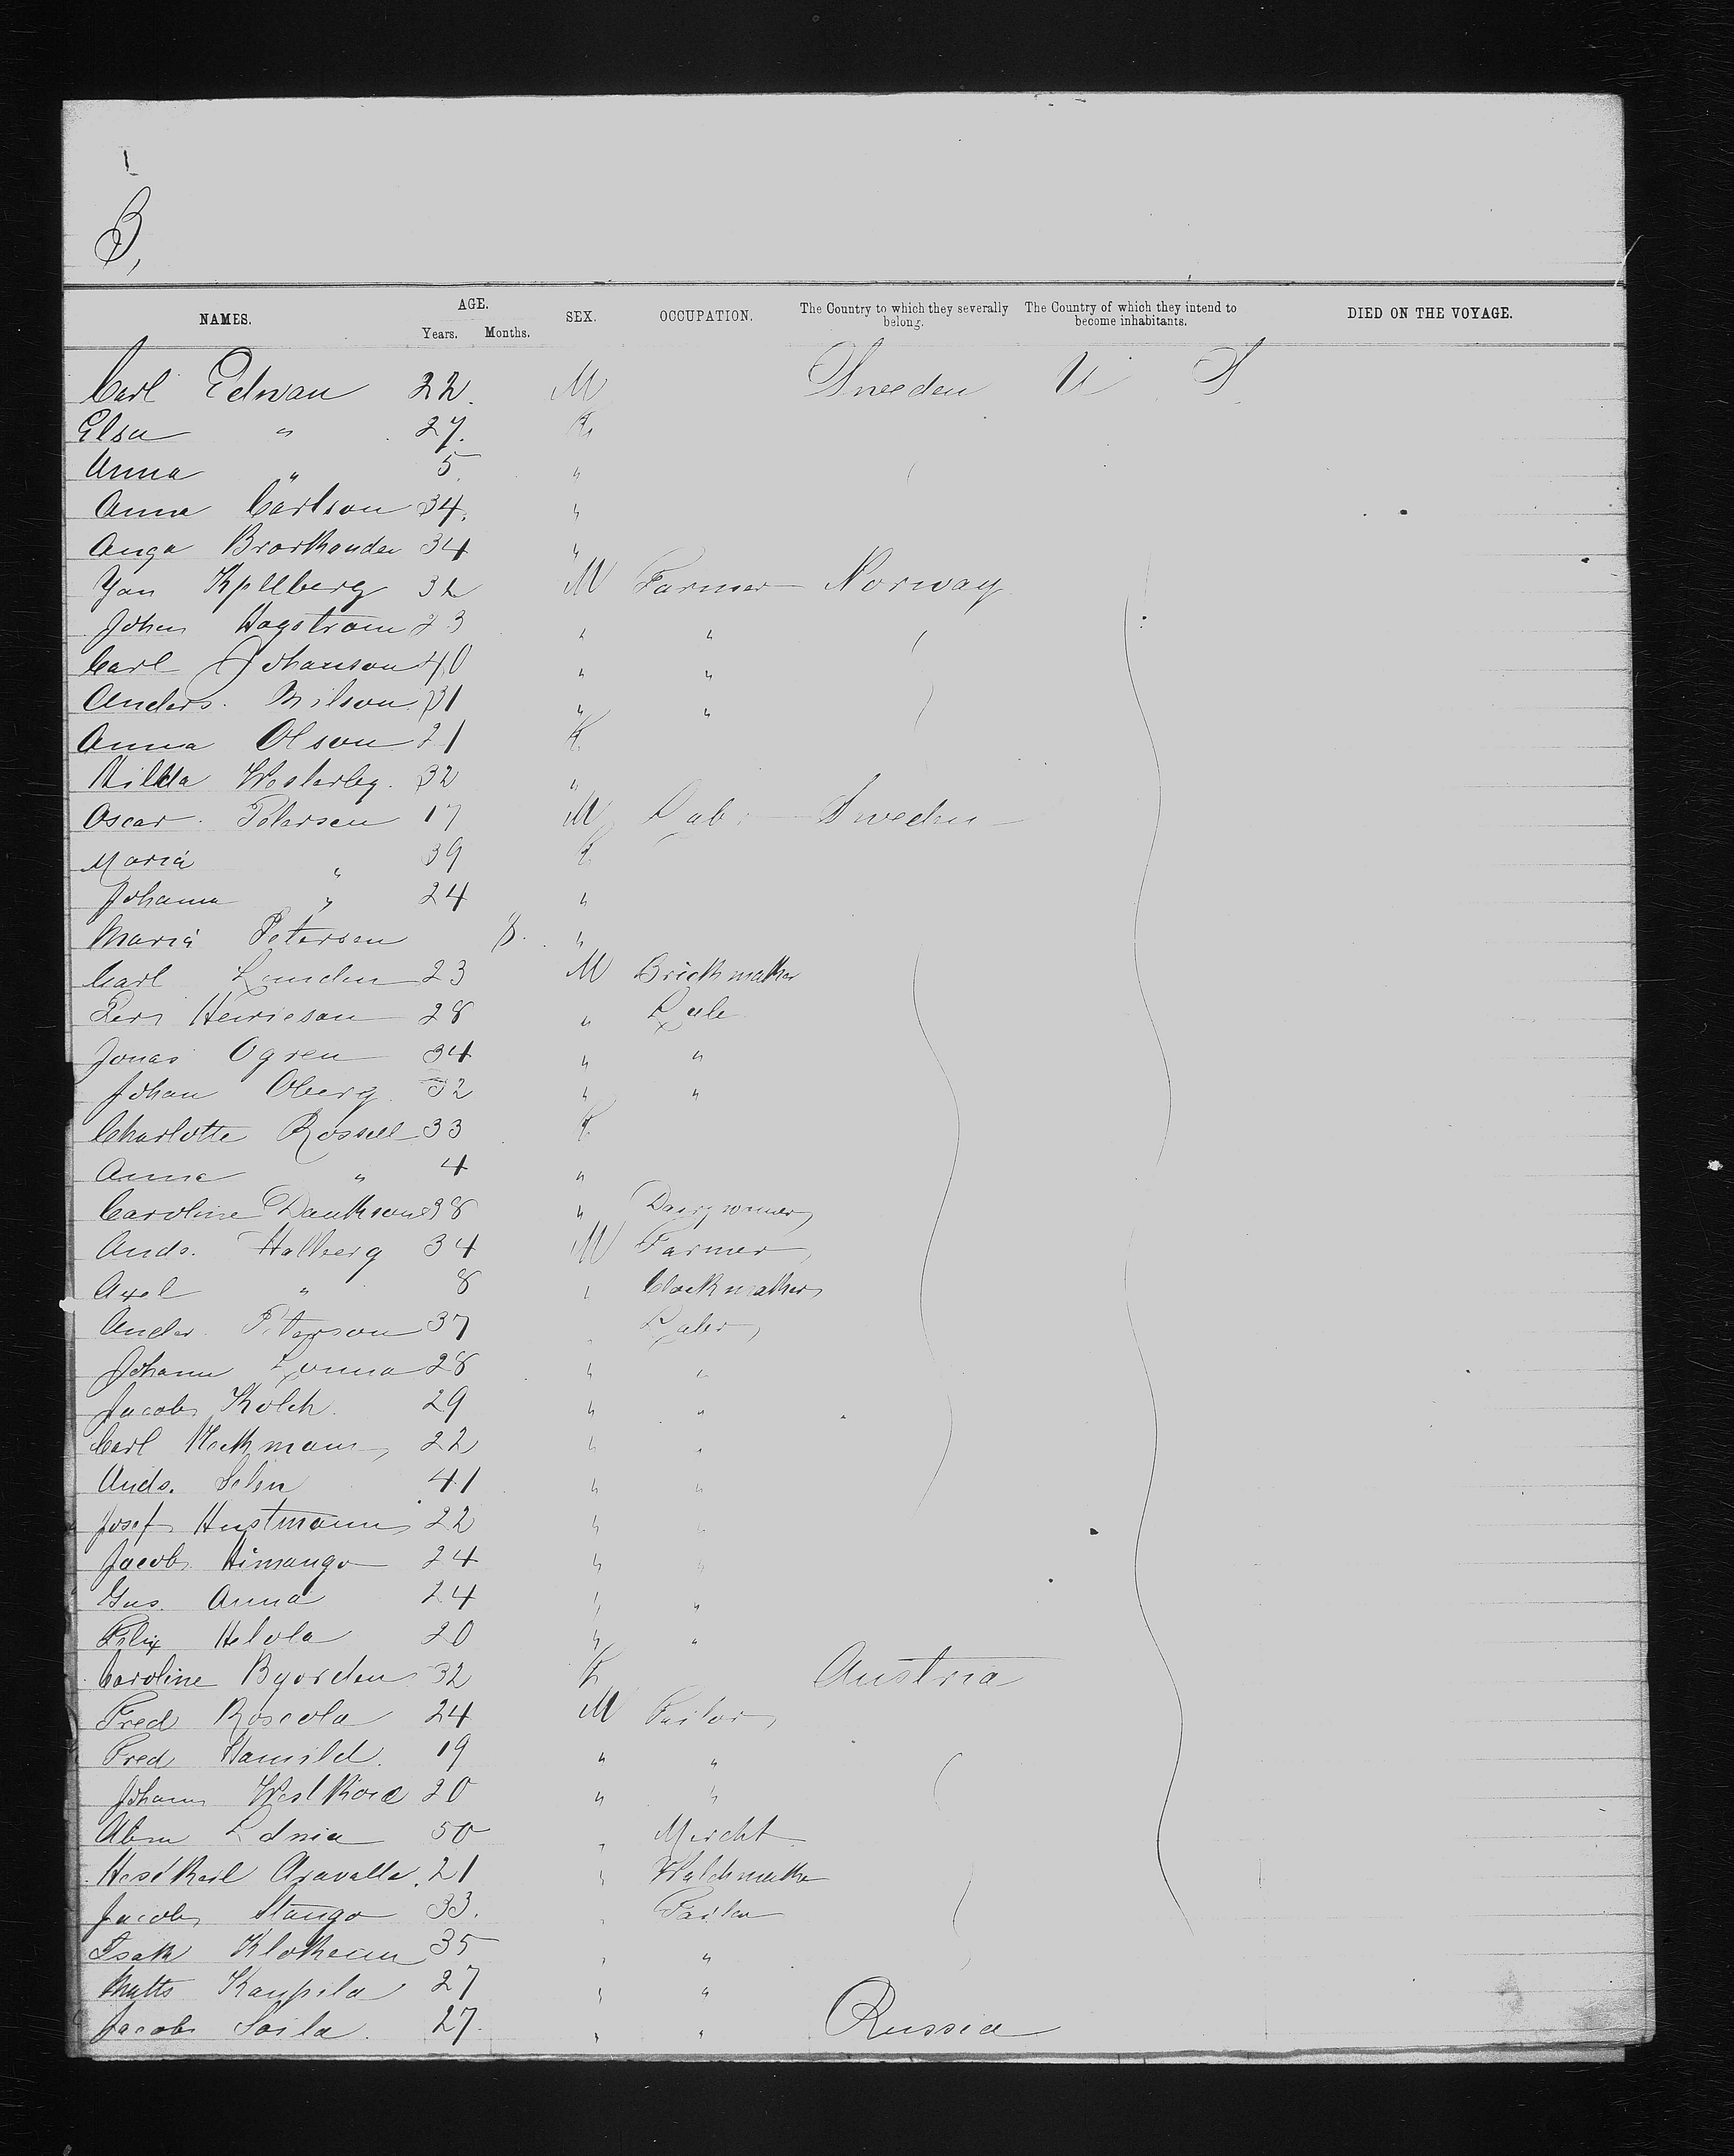 B,
NAMES. AGE. Years. Months. SEX. OCCUPATION. The Country to which they severally belong. The Country of which they intend to become inhabitants. DIED ON THE VOYAGE.
Carl Edwan 22. M Sweden U S
Elsa " 27. F
Anna " 5 "
Anna Carlson 34. "
34 "
32 M Farmer Norway
John Hagstrom 23 " "
Carl Johanson 40 " "
Anders. Nilson. 31 " "
Anna Olson 21 F
Hilda Westerbg. 32 "
Oscar. Petersen 17 M Lab. Sweden
Maria " 39 F
Johanna " 24 "
Maria Petersen 8. "
Carl Lunden 23 M Brickmaker
Pers Henricson 28 "
Jonas Ogren 34 " "
Johan Oberg 32 " "
Charlotte Rossell 33 F
Anna " 4 "
Caroline 38 "
Ands. Halberg 34 M Farmer
Axel " 8 " Clockmaker
Ander. Peterson 37 Labr
Johann 28 " "
Jacob Kolch 29 " "
Carl 22 " "
Ands. Selin 41 " "
Josef Hustmann 22 " "
Jacob Himango 24 " "
Gus. Anna 24 " "
Felix Helola 20 " "
Caroline Byorden 32 F Austria
Fred Roscola 24 M Tailor
Fred 19 " "
Johann 20 " "
Abm 50 " Mercht
21 " Watchmaker
Jacob Stango 33. " Tailor
Isak 35 " "
Matts Kaupila 27 " "
Jacob Soila. 27. " " Russia